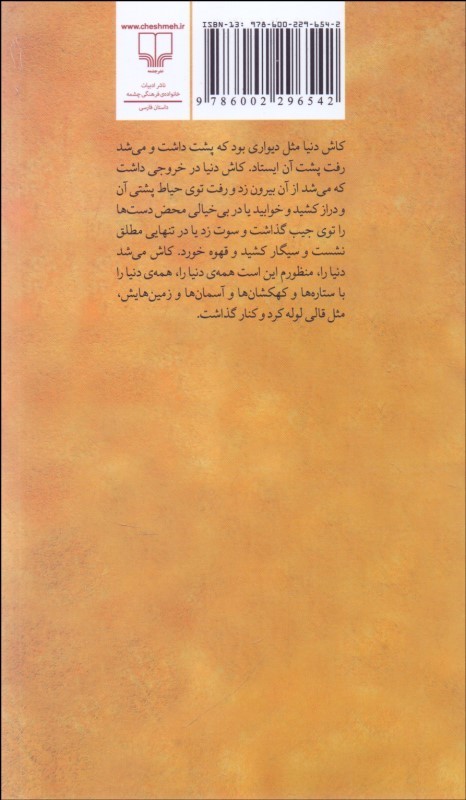 www.cheshmeh.ir
نشرچشمه
ناشر ادبیات
خانواده‌ی فرهنگی چشمه
داستان فارسی
ISBN-13: 978-600-229-654-2
9 786002 296542
کاش دنیا مثل دیواری بود که پشت داشت و می‌شد
رفت پشت آن ایستاد. کاش دنیا در خروجی داشت
که می‌شد از آن بیرون زد و رفت توی حیاط پشتی آن
و دراز کشید و خوابید یا در بی‌خیالی محض دست‌ها
را توی جیب گذاشت و سوت زد یا در تنهایی مطلق
نشست و سیگار کشید و قهوه خورد. کاش می‌شد
دنیا را، منظورم این است همه‌ی دنیا را، همه‌ی دنیا را
با ستاره‌ها و کهکشان‌ها و آسمان‌ها و زمین‌هایش،
مثل قالی لوله کرد و کنار گذاشت.